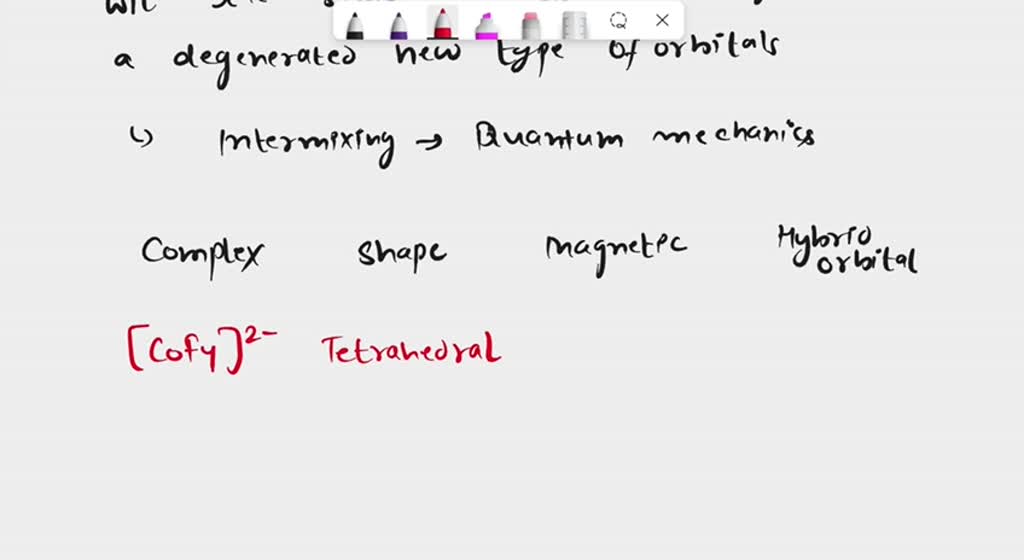 a degenerated new type of orbitals
↳ Intermixing → Quantum mechanics
Complex shape magnetic Hybrid orbital
[CoF4]2- Tetrahedral